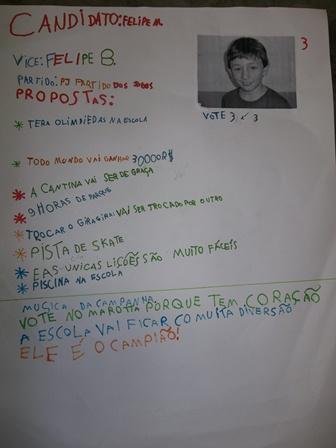 CANDIDATO: FELIPE M.
3
VICE: FELIPE B.
PARTIDO: PJ PARTIDO DOS JOGOS
PROPOSTAS:
VOTE 3 3
* TERA OLIMPIEDAS NA ESCOLA
* TODO MUNDO VAI GANHAR 30000R$
* A CANTINA VAI SER DE GRAÇA
* 9 HORAS DE PARQUE
* TROCAR O GIRAGIRA: VAI SER TROCADO POR OUTRO
* PISTA DE SKATE
* E AS UNICAS LIÇÕES SÃO MUITO FÁCEIS
* PISCINA NA ESCOLA
MUCICA DA CAMPANHA
VOTE NO MAROTTA PORQUE TEM CORAÇÃO
A ESCOLA VAI FICAR CO MUITA DIVERSÃO
ELE É O CAMPIÃO!